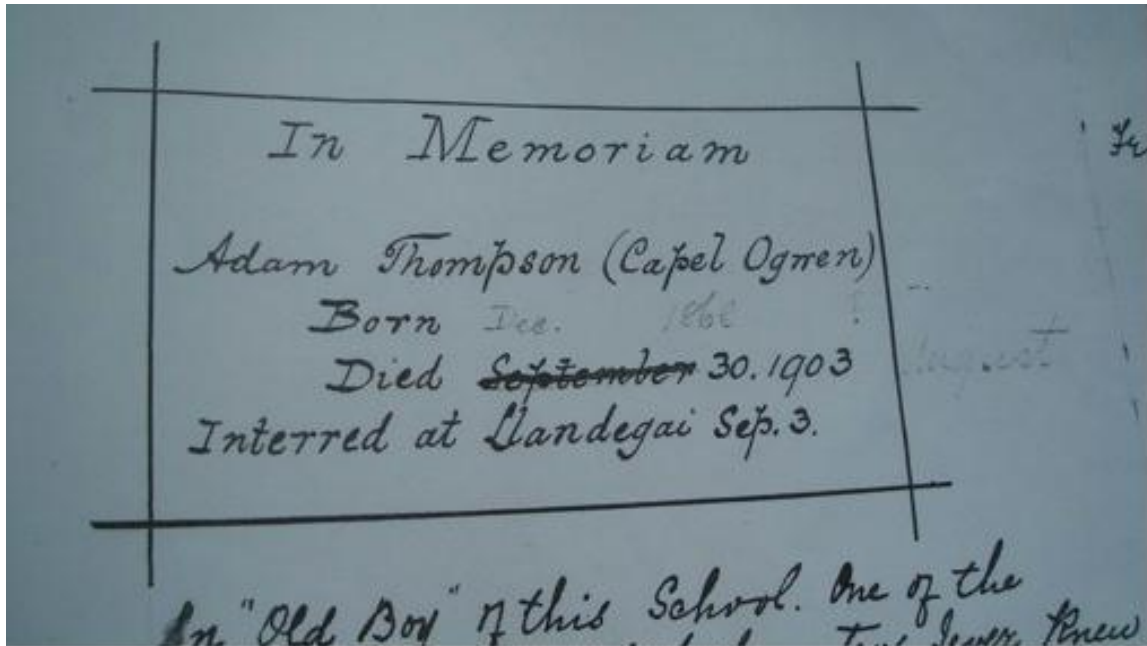 In Memoriam
Adam Thompson (Capel Ogwen)
Born Dec.
Died September 30. 1903
August
Interred at Llandegai Sep. 3.
An "Old Boy" of this School. One of the
Knew